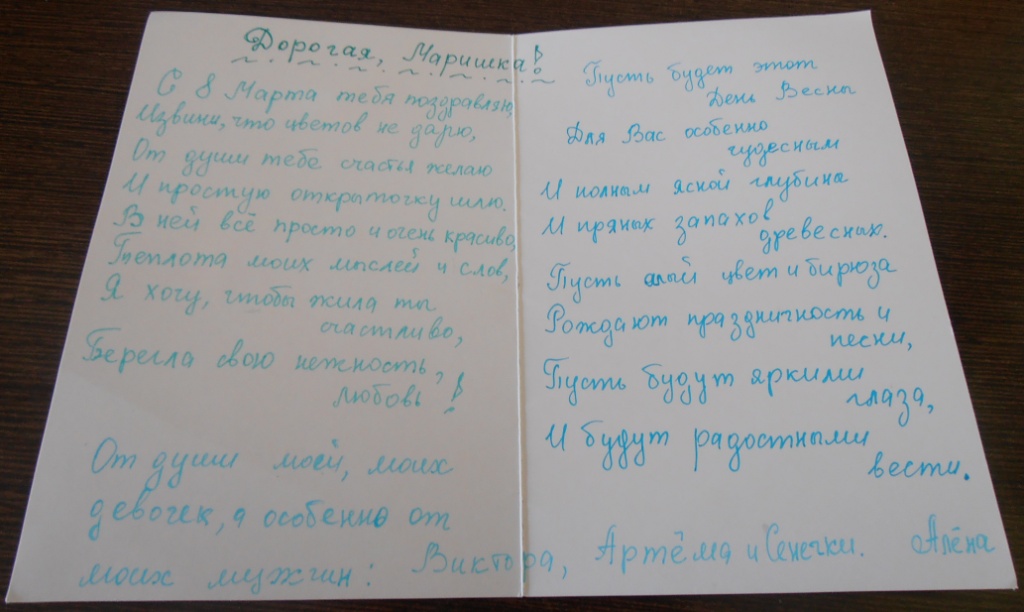 Дорогая, Маришка!
С 8 Марта тебя поздравляю,
Извини, что цветов не дарю,
От души тебе счастья желаю
И простую открыточку шлю.
В ней всё просто и очень красиво,
Теплота моих мыслей и слов,
Я хочу, чтобы жила ты
счастливо,
Берегла свою нежность,
любовь!
Пусть будет этот
День Весны
Для Вас особенно
чудесным
И полным ясной глубина
И пряных запахов
древесных.
Пусть алый цвет и бирюза
Рождают праздничность и
песни,
Пусть будут яркими
глаза,
И будут радостными
вести.
От души моей, моих
девочек, а особенно от
моих мужчин: Виктора, Артёма и Сенечки. Алёна